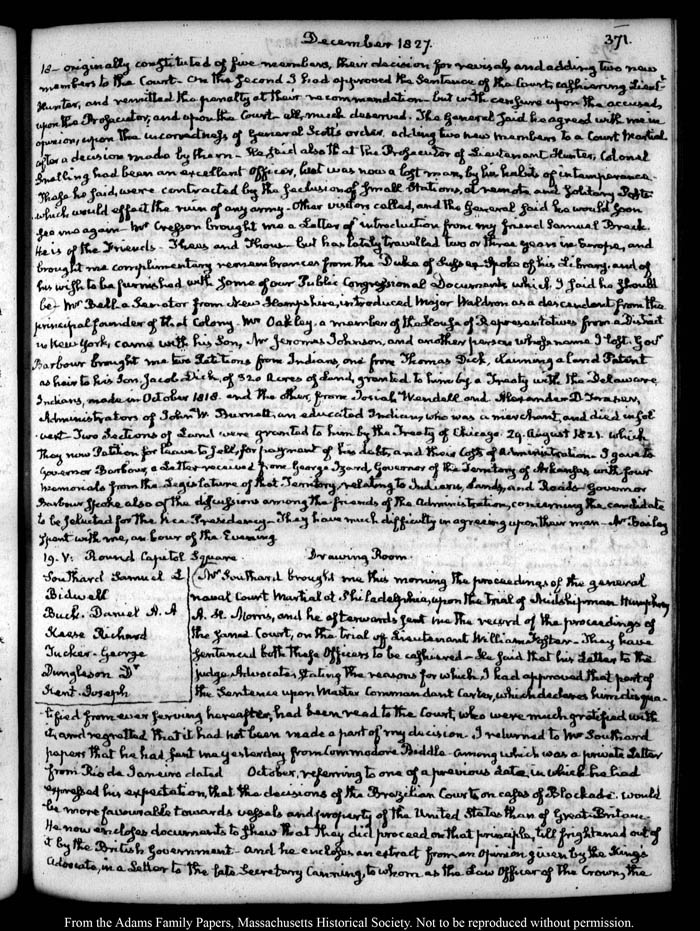 December 1827.
371.
18— originally constituted of five members, their decision for revisal, and adding two new
members to the Court— On the second I had approved the Sentence of the Court, cashiering Lieutt
Hunter, and remitted the penalty at their recommendation— but with censure upon the accused,
upon the Prosecutor, and upon the Court— all, much deserved. The General said he agreed with me in
opinion, upon the incorrectness of General Scott's order, adding two new members to a Court Martial
after a decision made by them— He said also that the Prosecutor of Lieutenant Hunter, Colonel
Snelling had been an excellent Officer, but was now a lost man, by his habits of intemperance.
These he said, were contracted by the seclusion of small Stations, at remote and solitary Posts
which would effect the ruin of any army— Other visitors called, and the General said he would soon
see me again— Mr Cresson brought me a Letter of introduction from my friend Samuel Breck.
He is of the Friends— Thees and Thous— but has lately travelled two or three years in Europe, and
brought me complimentary remembrances from the Duke of Sussex— Spoke of his Library, and of
his wish to be furnished with some of our Public Congressional Documents, which I said he should
be— Mr Bell a Senator from New Hampshire, introduced Major Waldron as a descendant from the
principal founder of that Colony. Mr Oakley, a member of the House of Representatives from a District
in New York, came with his Son, Mr Jeromus Johnson, and another person whose name I lost. Govr
Barbour brought me two Petitions from Indians, one from Thomas Dick, claiming a land Patent
as heir to his Son, Jacob Dick, of 320 Acres of Land, granted to him by a Treaty with the Delaware
Indians, made in October 1818. and the other, from Josiah Wendell and Alexander D. Fraser,
Administrators of John W. Burnett, an educated Indian, who was a merchant, and died insol
vent— Two Sections of Land were granted to him by the Treaty of Chicago. 29. August 1821. which
they now Petition for leave to sell, for payment of his debts, and their Costs of Administration— I gave to
Governor Barbour, a Letter received from George Izard, Governor of the Territory of Arkansas, with four
Memorials from the Legislature of that Territory, relating to Indians, Lands, and Roads— Governor
Barbour spoke also of the discussions among the friends of the Administration, concerning the candidate
to be selected for the Vice-Presidency— They have much difficulty in agreeing upon their man— Mr Bailey
spent with me, an hour of the Evening.
19. V: Round Capitol Square. Drawing Room.
Southard Samuel L
Bidwell
Buck. Daniel A. A
Keese Richard
Tucker. George
Dunglison Dr
Kent. Joseph
Mr Southard brought me this morning the proceedings of the general
naval Court Martial at Philadelphia, upon the trial of Midshipman Humphrey
A. H. Morris, and he afterwards sent me the record of the proceedings of
the same Court, on the trial of Lieutenant William Foster— They have
sentenced both these Officers to be cashiered— He said that his Letter to the
Judge Advocate, stating the reasons for which I had approved that part of
the Sentence upon Master Commandant Carter, which declares him disqua-
lified from ever serving hereafter, had been read to the Court, who were much gratified with
it, and regretted that it had not been made a part of my decision. I returned to Mr Southard
papers that he had sent me yesterday from Commodore Biddle— Among which was a private Letter
from Rio de Janeiro dated October, referring to one of a previous date, in which he had
expressed his expectation, that the decisions of the Brazilian Courts on cases of Blockade would
be more favourable towards vessels and property of the United States than of Great-Britain—
He now encloses documents to shew that they did proceed on that principle, till frightened out of
it by the British Government— And he encloses an extract from an Opinion given by the Kings
Advocate, in a Letter to the late Secretary Canning, to whom as the Law Officer of the Crown, the
From the Adams Family Papers, Massachusetts Historical Society. Not to be reproduced without permission.